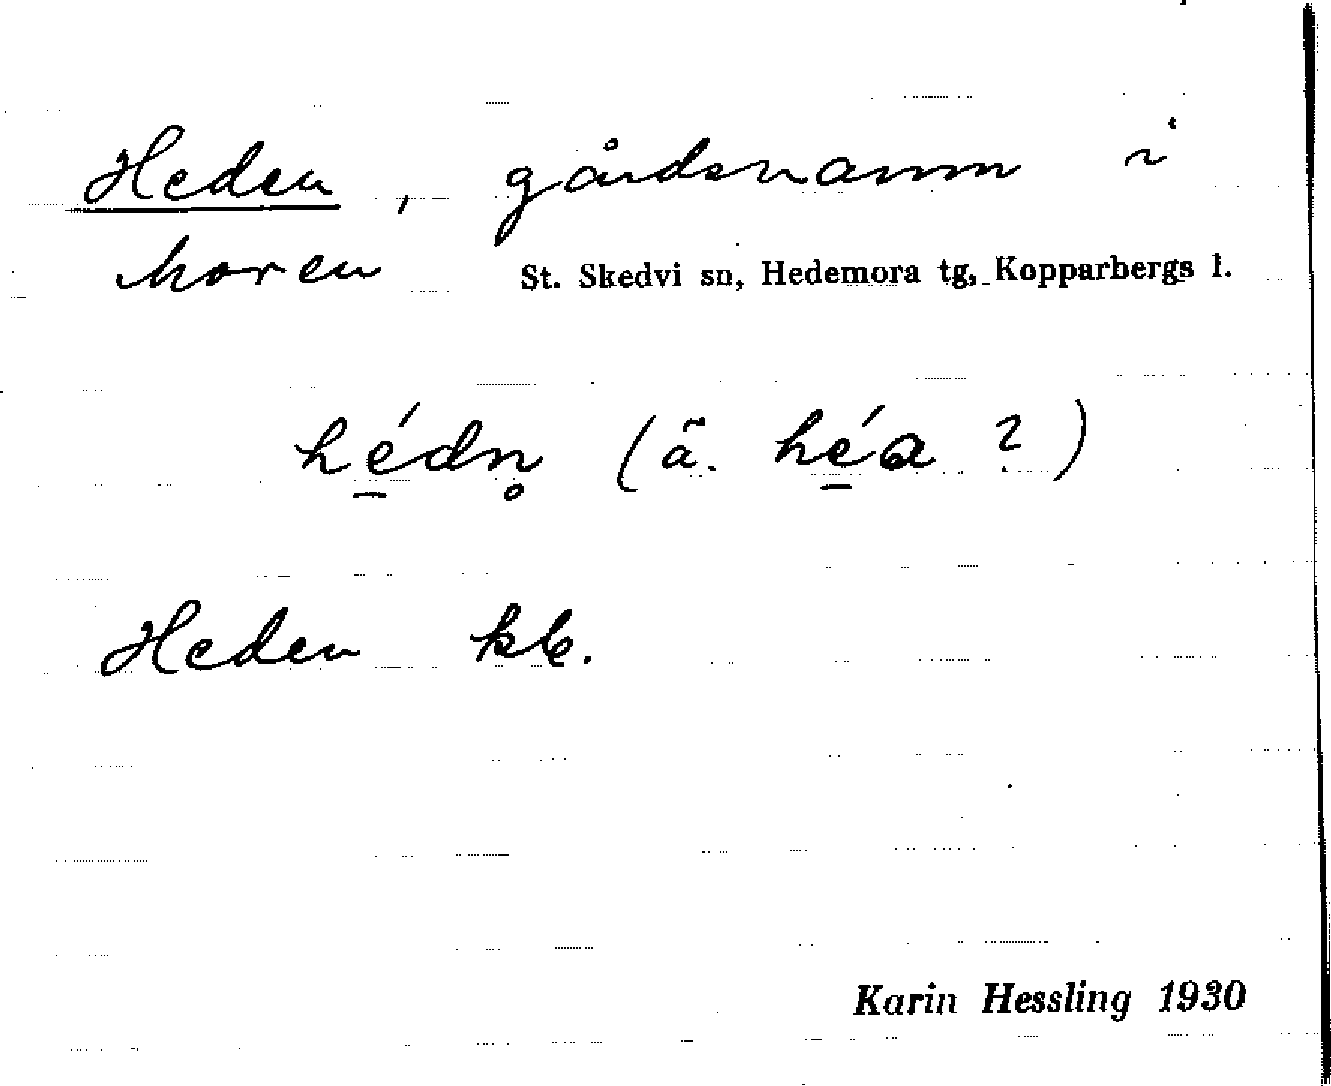 Heden, gårdsnamn i
Moren St. Skedvi sn, Hedemora tg, Kopparbergs l.
hé̱dn̥ (ä. hé̱a ?)
Heden kb.
Karin Hessling 1930